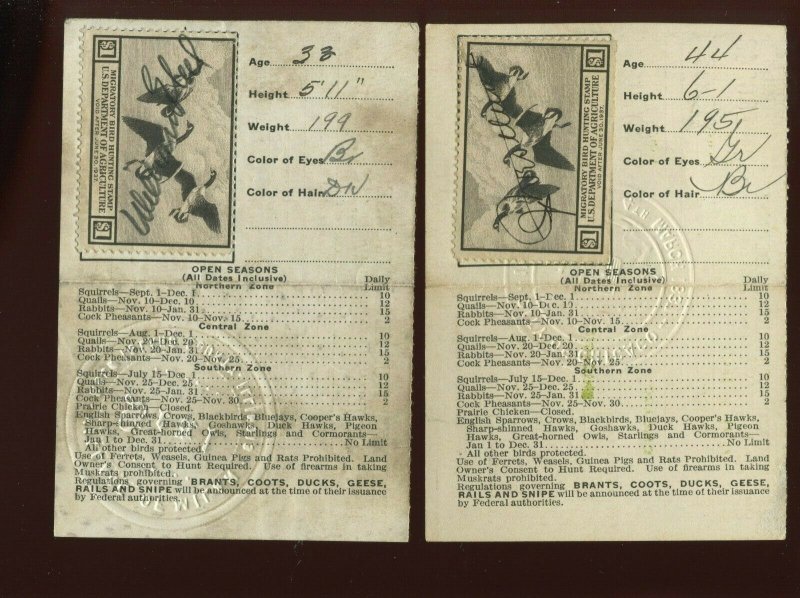 $1
MIGRATORY BIRD HUNTING STAMP
U.S. DEPARTMENT OF AGRICULTURE
VOID AFTER JUNE 30, 1937
$1
Age 33
Height 5'11"
Weight 199
Color of Eyes Br
Color of Hair
OPEN SEASONS
(All Dates Inclusive) Daily
Northern Zone Limit
Squirrels—Sept. 1-Dec. 1 10
Quails—Nov. 10-Dec. 10 12
Rabbits—Nov. 10-Jan. 31 15
Cock Pheasants—Nov. 10-Nov. 15 2
Central Zone
Squirrels—Aug. 1-Dec. 1 10
Quails—Nov. 20-Dec. 20 12
Rabbits—Nov. 20-Jan. 31 15
Cock Pheasants—Nov. 20-Nov. 25 2
Southern Zone
Squirrels—July 15-Dec. 1 10
Quails—Nov. 25-Dec. 25 12
Rabbits—Nov. 25-Jan. 31 15
Cock Pheasants—Nov. 25-Nov. 30 2
Prairie Chicken—Closed.
English Sparrows, Crows, Blackbirds, Bluejays, Cooper's Hawks,
Sharp-shinned Hawks, Goshawks, Duck Hawks, Pigeon
Hawks, Great-horned Owls, Starlings and Cormorants—
Jan 1 to Dec. 31 No Limit
All other birds protected.
Use of Ferrets, Weasels, Guinea Pigs and Rats Prohibited. Land
Owner's Consent to Hunt Required. Use of firearms in taking
Muskrats prohibited.
Regulations governing BRANTS, COOTS, DUCKS, GEESE,
RAILS AND SNIPE will be announced at the time of their issuance
by Federal authorities.
$1
MIGRATORY BIRD HUNTING STAMP
U.S. DEPARTMENT OF AGRICULTURE
VOID AFTER JUNE 30, 1937
$1
Age 44
Height 6-1
Weight 195
Color of Eyes Gr
Color of Hair Br
OPEN SEASONS
(All Dates Inclusive) Daily
Northern Zone Limit
Squirrels—Sept. 1-Dec. 1 10
Quails—Nov. 10-Dec. 10 12
Rabbits—Nov. 10-Jan. 31 15
Cock Pheasants—Nov. 10-Nov. 15 2
Central Zone
Squirrels—Aug. 1-Dec. 1 10
Quails—Nov. 20-Dec. 20 12
Rabbits—Nov. 20-Jan. 31 15
Cock Pheasants—Nov. 20-Nov. 25 2
Southern Zone
Squirrels—July 15-Dec. 1 10
Quails—Nov. 25-Dec. 25 12
Rabbits—Nov. 25-Jan. 31 15
Cock Pheasants—Nov. 25-Nov. 30 2
Prairie Chicken—Closed.
English Sparrows, Crows, Blackbirds, Bluejays, Cooper's Hawks,
Sharp-shinned Hawks, Goshawks, Duck Hawks, Pigeon
Hawks, Great-horned Owls, Starlings and Cormorants—
Jan 1 to Dec. 31 No Limit
All other birds protected.
Use of Ferrets, Weasels, Guinea Pigs and Rats Prohibited. Land
Owner's Consent to Hunt Required. Use of firearms in taking
Muskrats prohibited.
Regulations governing BRANTS, COOTS, DUCKS, GEESE,
RAILS AND SNIPE will be announced at the time of their issuance
by Federal authorities.